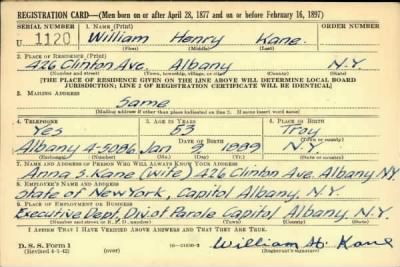 REGISTRATION CARD—(Men born on or after April 28, 1877 and on or before February 16, 1897)
SERIAL NUMBER 1. NAME (Print) ORDER NUMBER
U 1120 William Henry Kane
(First) (Middle) (Last)
2. PLACE OF RESIDENCE (Print)
426 Clinton Ave, Albany N.Y.
(Number and street) (Town, township, village, or city) (County) (State)
[THE PLACE OF RESIDENCE GIVEN ON THE LINE ABOVE WILL DETERMINE LOCAL BOARD
JURISDICTION; LINE 2 OF REGISTRATION CERTIFICATE WILL BE IDENTICAL]
3. MAILING ADDRESS
Same
(Mailing address if other than place indicated on line 2. If same insert word same)
4. TELEPHONE 5. AGE IN YEARS 6. PLACE OF BIRTH
Yes 53 Troy
DATE OF BIRTH (Town or county)
Albany 4-5086 Jan 3 1889 N.Y.
(Exchange) (Number) (Mo.) (Day) (Yr.) (State or country)
7. NAME AND ADDRESS OF PERSON WHO WILL ALWAYS KNOW YOUR ADDRESS
Anna S. Kane (wife) 426 Clinton Ave. Albany NY
8. EMPLOYER'S NAME AND ADDRESS
State of New York, Capitol Albany, N.Y.
9. PLACE OF EMPLOYMENT OR BUSINESS
Executive Dept, Div. of Parole Capitol Albany, N.Y.
(Number and street or R. F. D. number) (Town) (County) (State)
I AFFIRM THAT I HAVE VERIFIED ABOVE ANSWERS AND THAT THEY ARE TRUE.
D. S. S. Form 1
(Revised 4-1-42) (over) William H. Kane
(Registrant's signature)